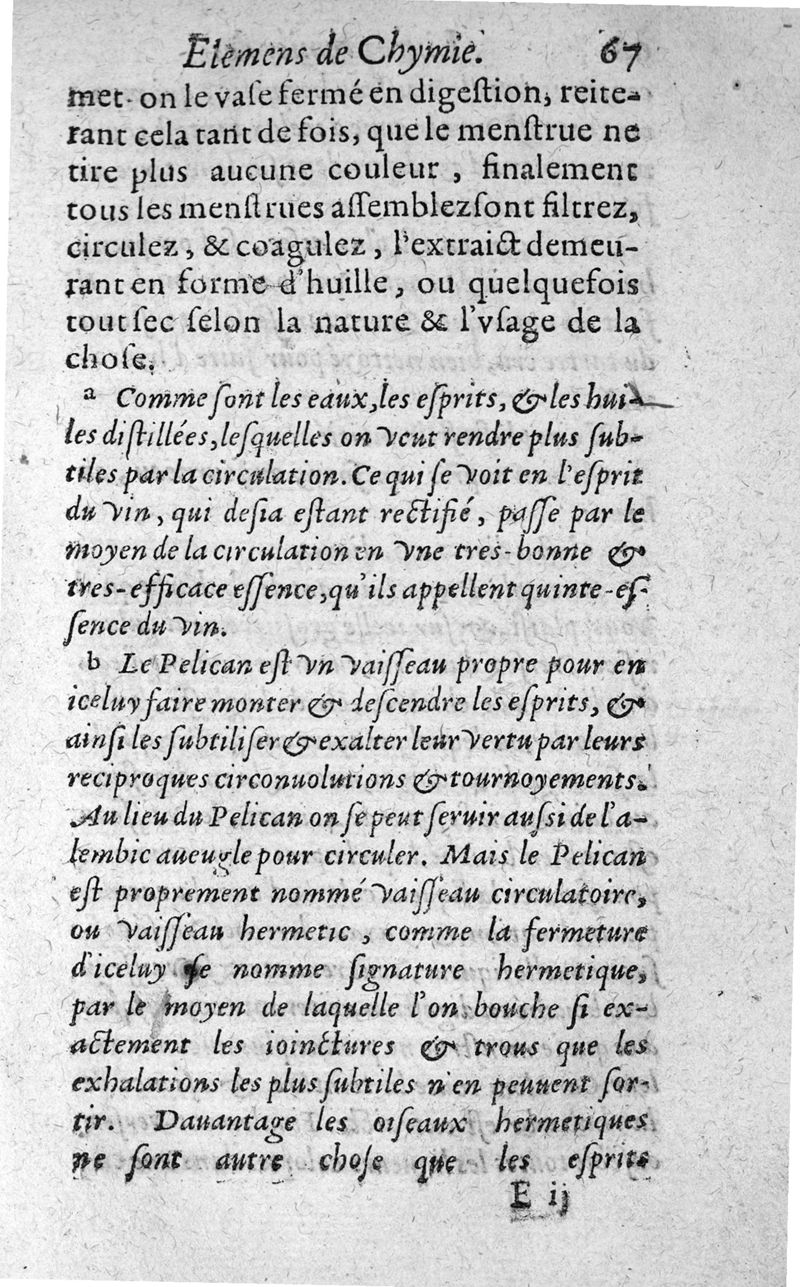 Elemens de Chymie. 67
met on le vaſe fermé en digeſtion, reite-
rant cela tant de fois, que le menſtrue ne
tire plus aucune couleur , finalement
tous les menſtrues aſſemblez ſont filtrez,
circulez , & coagulez , l'extraict demeu-
rant en forme d'huille , ou quelquefois
tout ſec ſelon la nature & l'vſage de la
choſe.
a Comme ſont les eaux, les eſprits, & les hui-
les diſtillées, leſquelles on veut rendre plus ſub-
tiles par la circulation. Ce qui ſe voit en l'eſprit
du vin, qui deſia eſtant rectifié, paſſe par le
moyen de la circulation en vne tres-bonne &
tres-efficace eſſence, qu'ils appellent quinte-eſ-
ſence du vin.
b Le Pelican eſt vn vaiſſeau propre pour en
iceluy faire monter & deſcendre les eſprits, &
ainſi les ſubtiliſer & exalter leur vertu par leurs
reciproques circonuolutions & tournoyements.
Au lieu du Pelican on ſe peut ſeruir auſsi de l'a-
lembic aueugle pour circuler. Mais le Pelican
eſt proprement nommé vaiſſeau circulatoire,
ou vaiſſeau hermetic , comme la fermeture
d'iceluy ſe nomme ſignature hermetique,
par le moyen de laquelle l'on bouche ſi ex-
actement les ioinctures & trous que les
exhalations les plus ſubtiles n'en peuuent ſor-
tir. Dauantage les oiſeaux hermetiques
ne ſont autre choſe que les eſprits
E ij